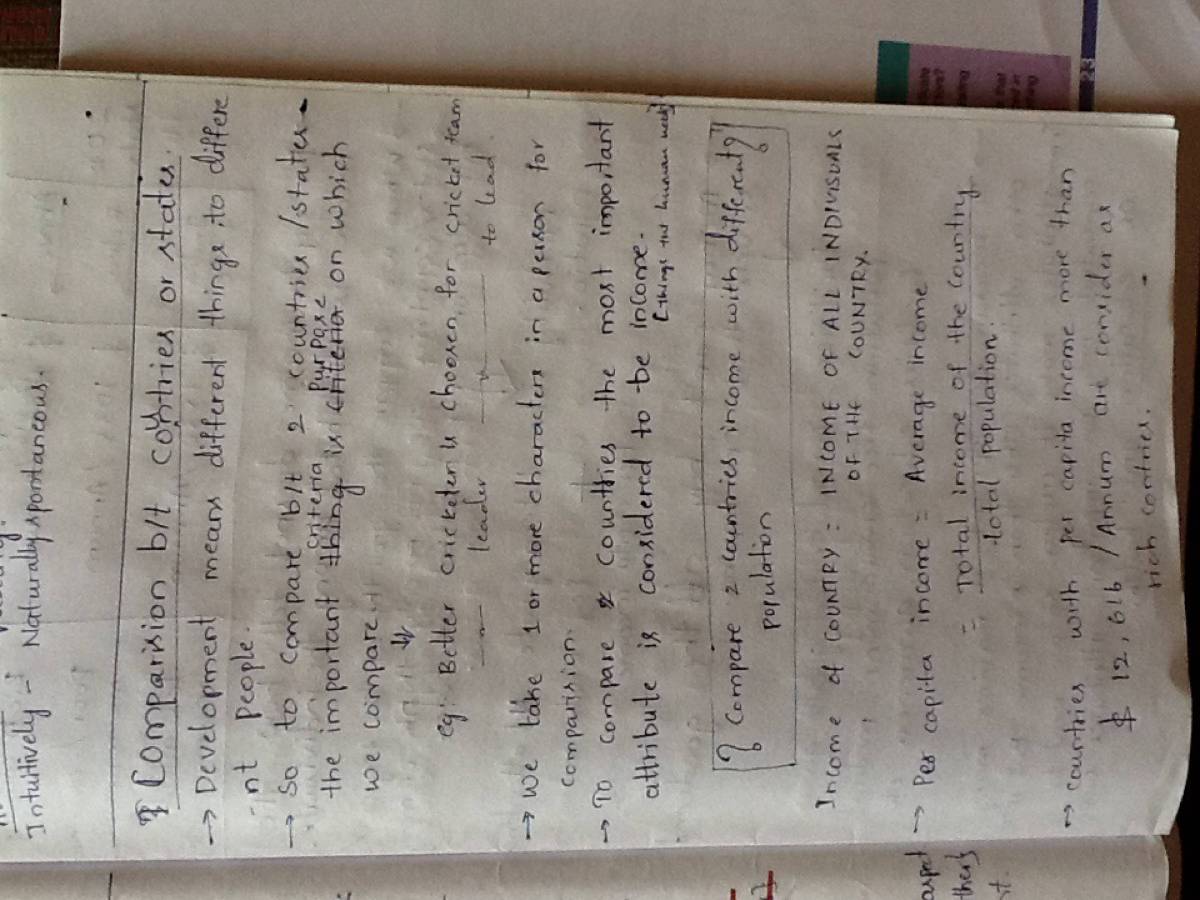 Intuitively - Naturally, spontaneous.
Comparision b/t contries or states.
→ Development means different things to differe
-nt people.
→ So to compare b/t 2 countries /states
criteria purpose
the important thing is criteria on which
we compare.
eg: Better cricketer is choosen for cricket team
leader to lead
→ We take 1 or more characters in a person for
comparision.
→ To compare 2 countries the most important
attribute is considered to be income.
[things the human need]
? Compare 2 countries income with different ?
population
Income of COUNTRY = INCOME OF ALL INDIVISUALS
OF THE COUNTRY.
→ Per capita income = Average income
= Total income of the country
total population.
→ countries with per capita income more than
$ 12,616 / Annum are consider as
rich contries.
aspect
23